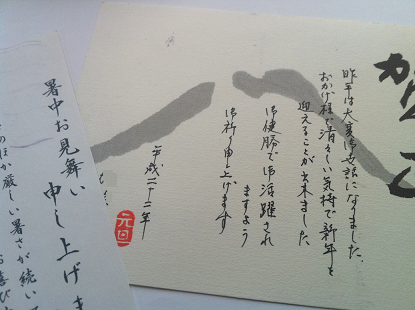 昨年は大変お世話になりました。
おかげ様で清々しい気持で新年を
迎えることが出来ました
御健勝で御活躍され
ますよう
御祈り申し上げます
平成二十二年
元旦
暑中お見舞い
申し上げま
厳しい暑さが続いて